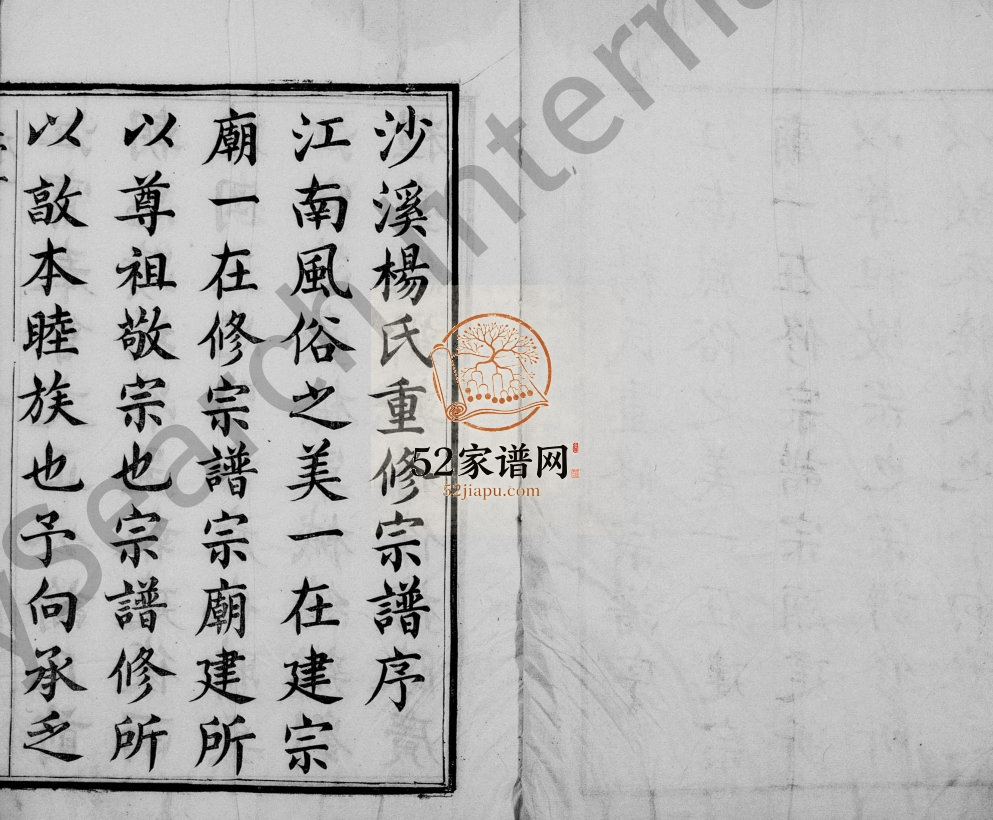 沙溪楊氏重修宗譜序
江南風俗之美一在建宗
廟一在修宗譜宗廟建所
以尊祖敬宗也宗譜修所
以敦本睦族也予向承乏
52家谱网
52jiapu.com
ySearch Intern